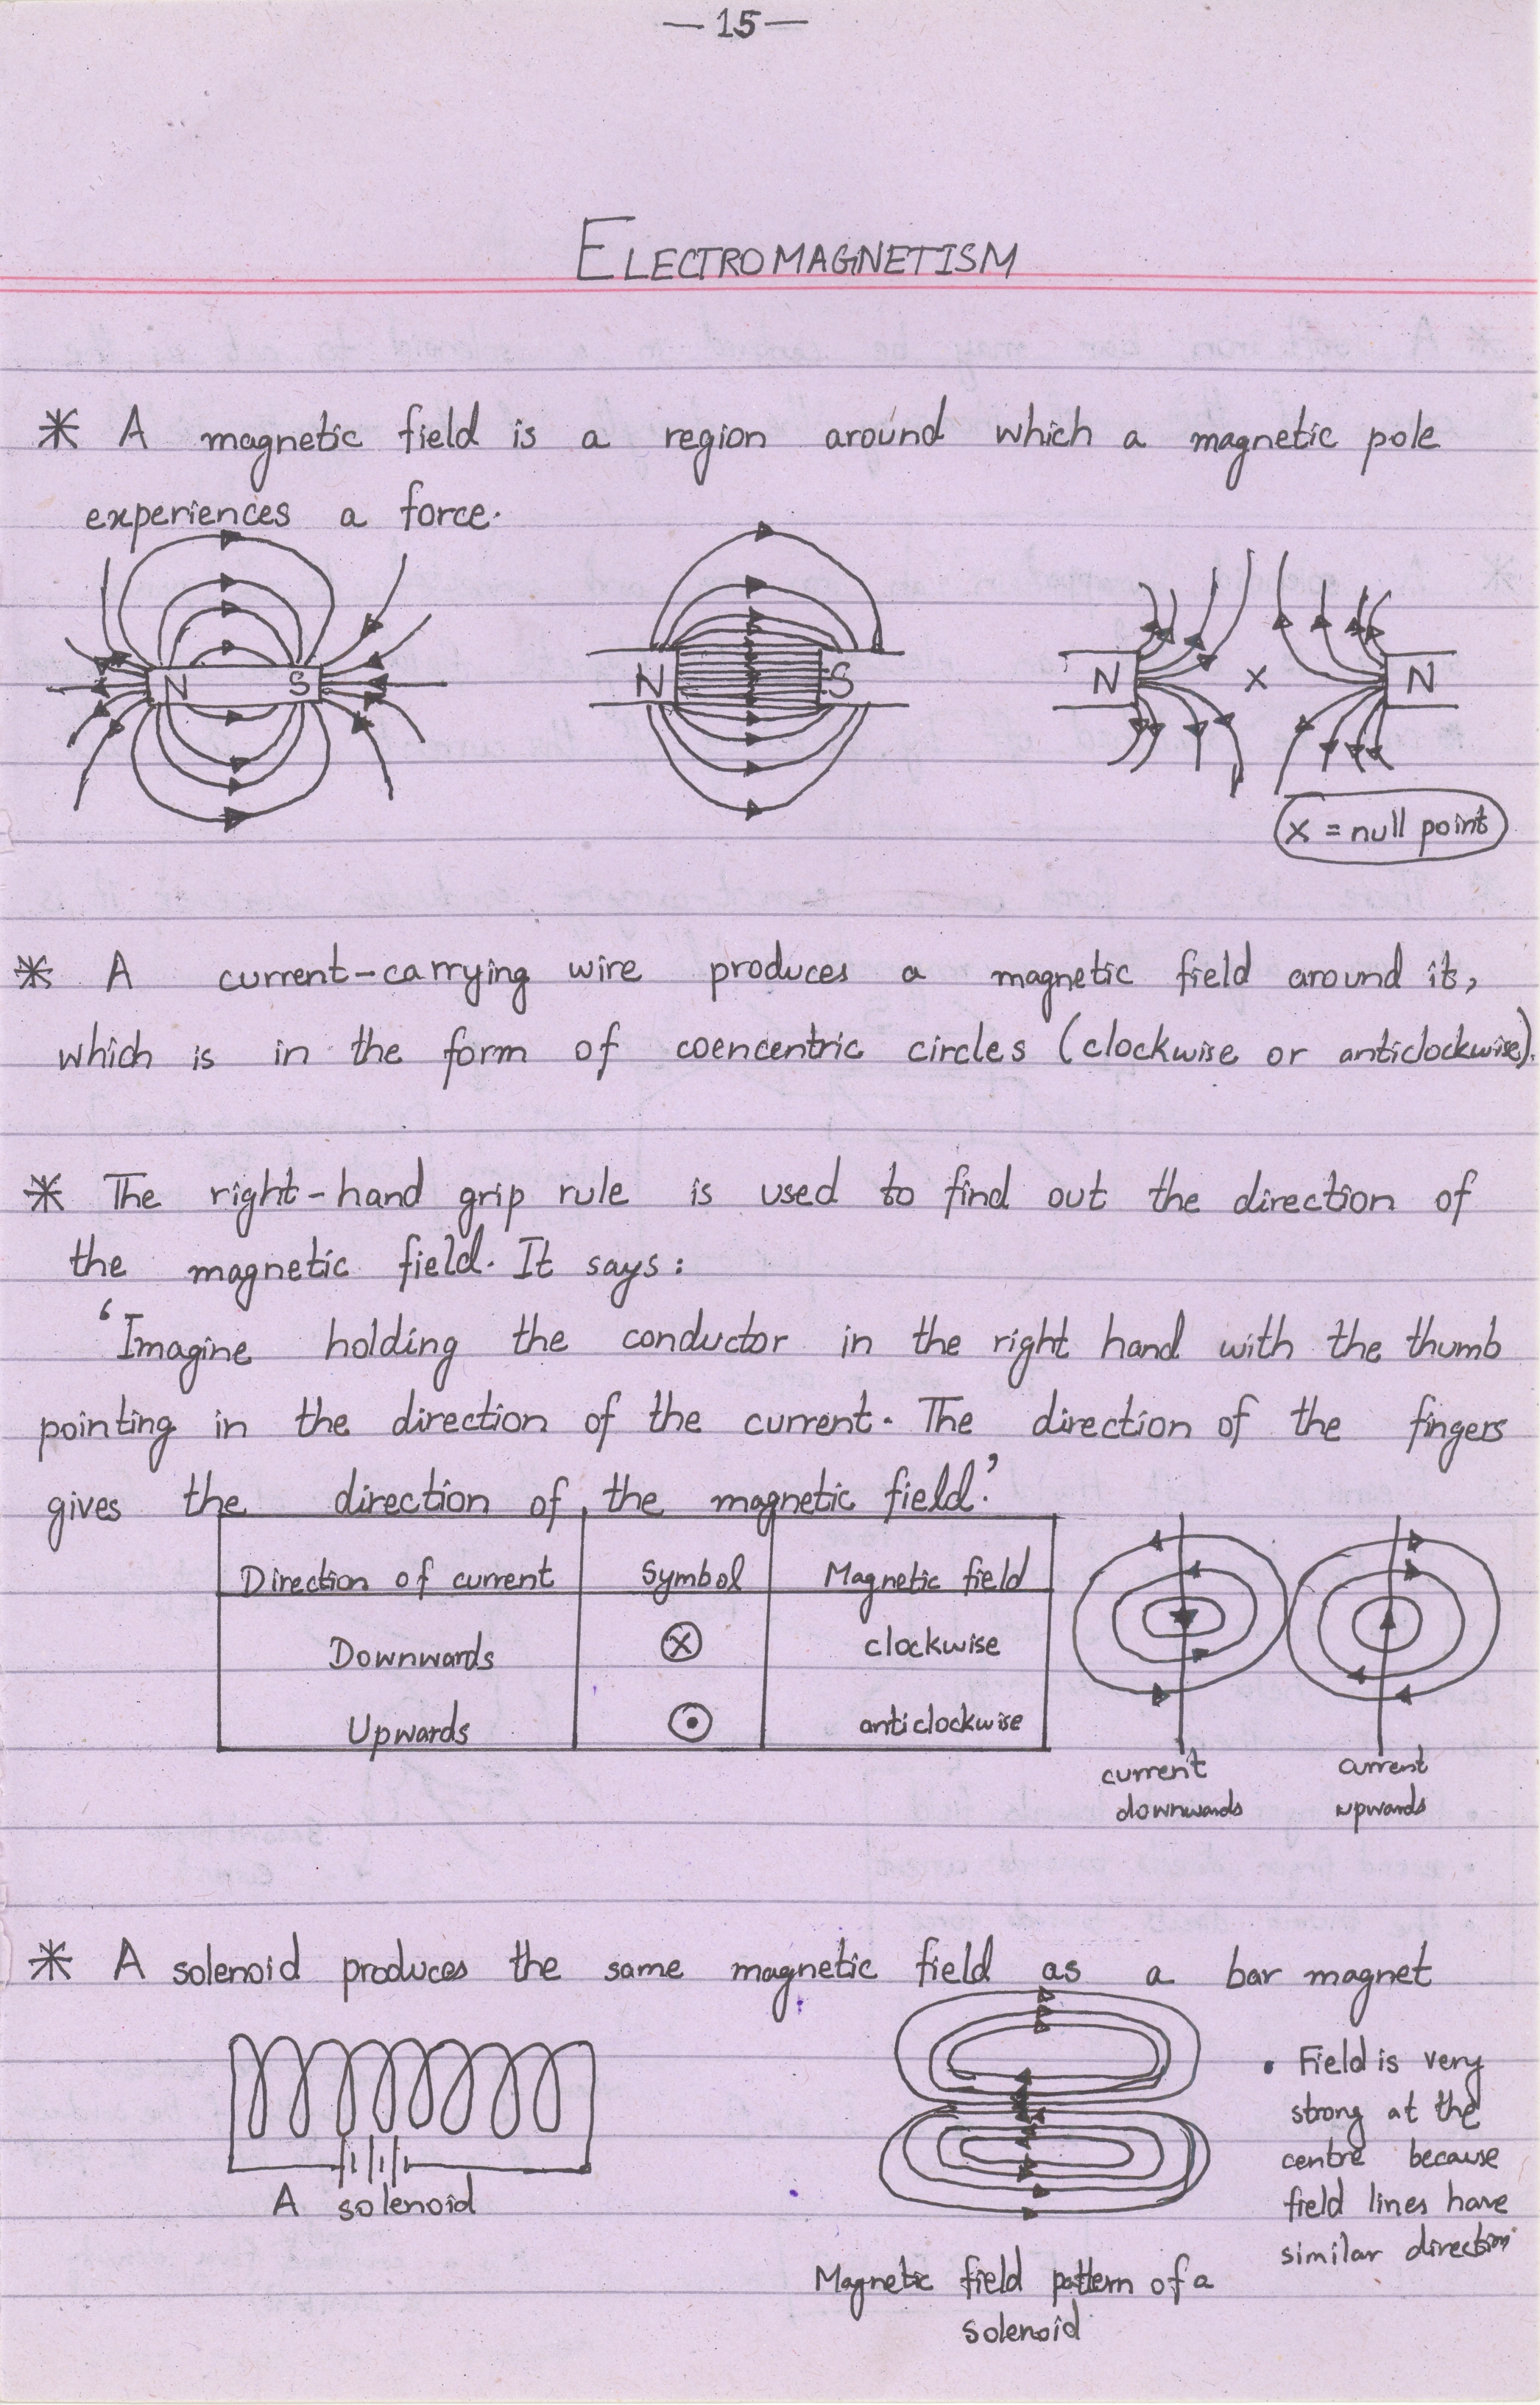 —15—
ELECTROMAGNETISM
* A magnetic field is a region around which a magnetic pole
experiences a force.
N S
N S
N x N
x = null point
* A current-carrying wire produces a magnetic field around it,
which is in the form of coencentric circles (clockwise or anticlockwise).
* The right-hand grip rule is used to find out the direction of
the magnetic field. It says:
'Imagine holding the conductor in the right hand with the thumb
pointing in the direction of the current. The direction of the fingers
gives the direction of the magnetic field.'
Direction of current Symbol Magnetic field
Downwards ⊗ clockwise
Upwards ⊙ anticlockwise
current
downwards
current
upwards
* A solenoid produces the same magnetic field as a bar magnet
A solenoid
Magnetic field pattern of a
solenoid
• Field is very
strong at the
centre because
field lines have
similar direction